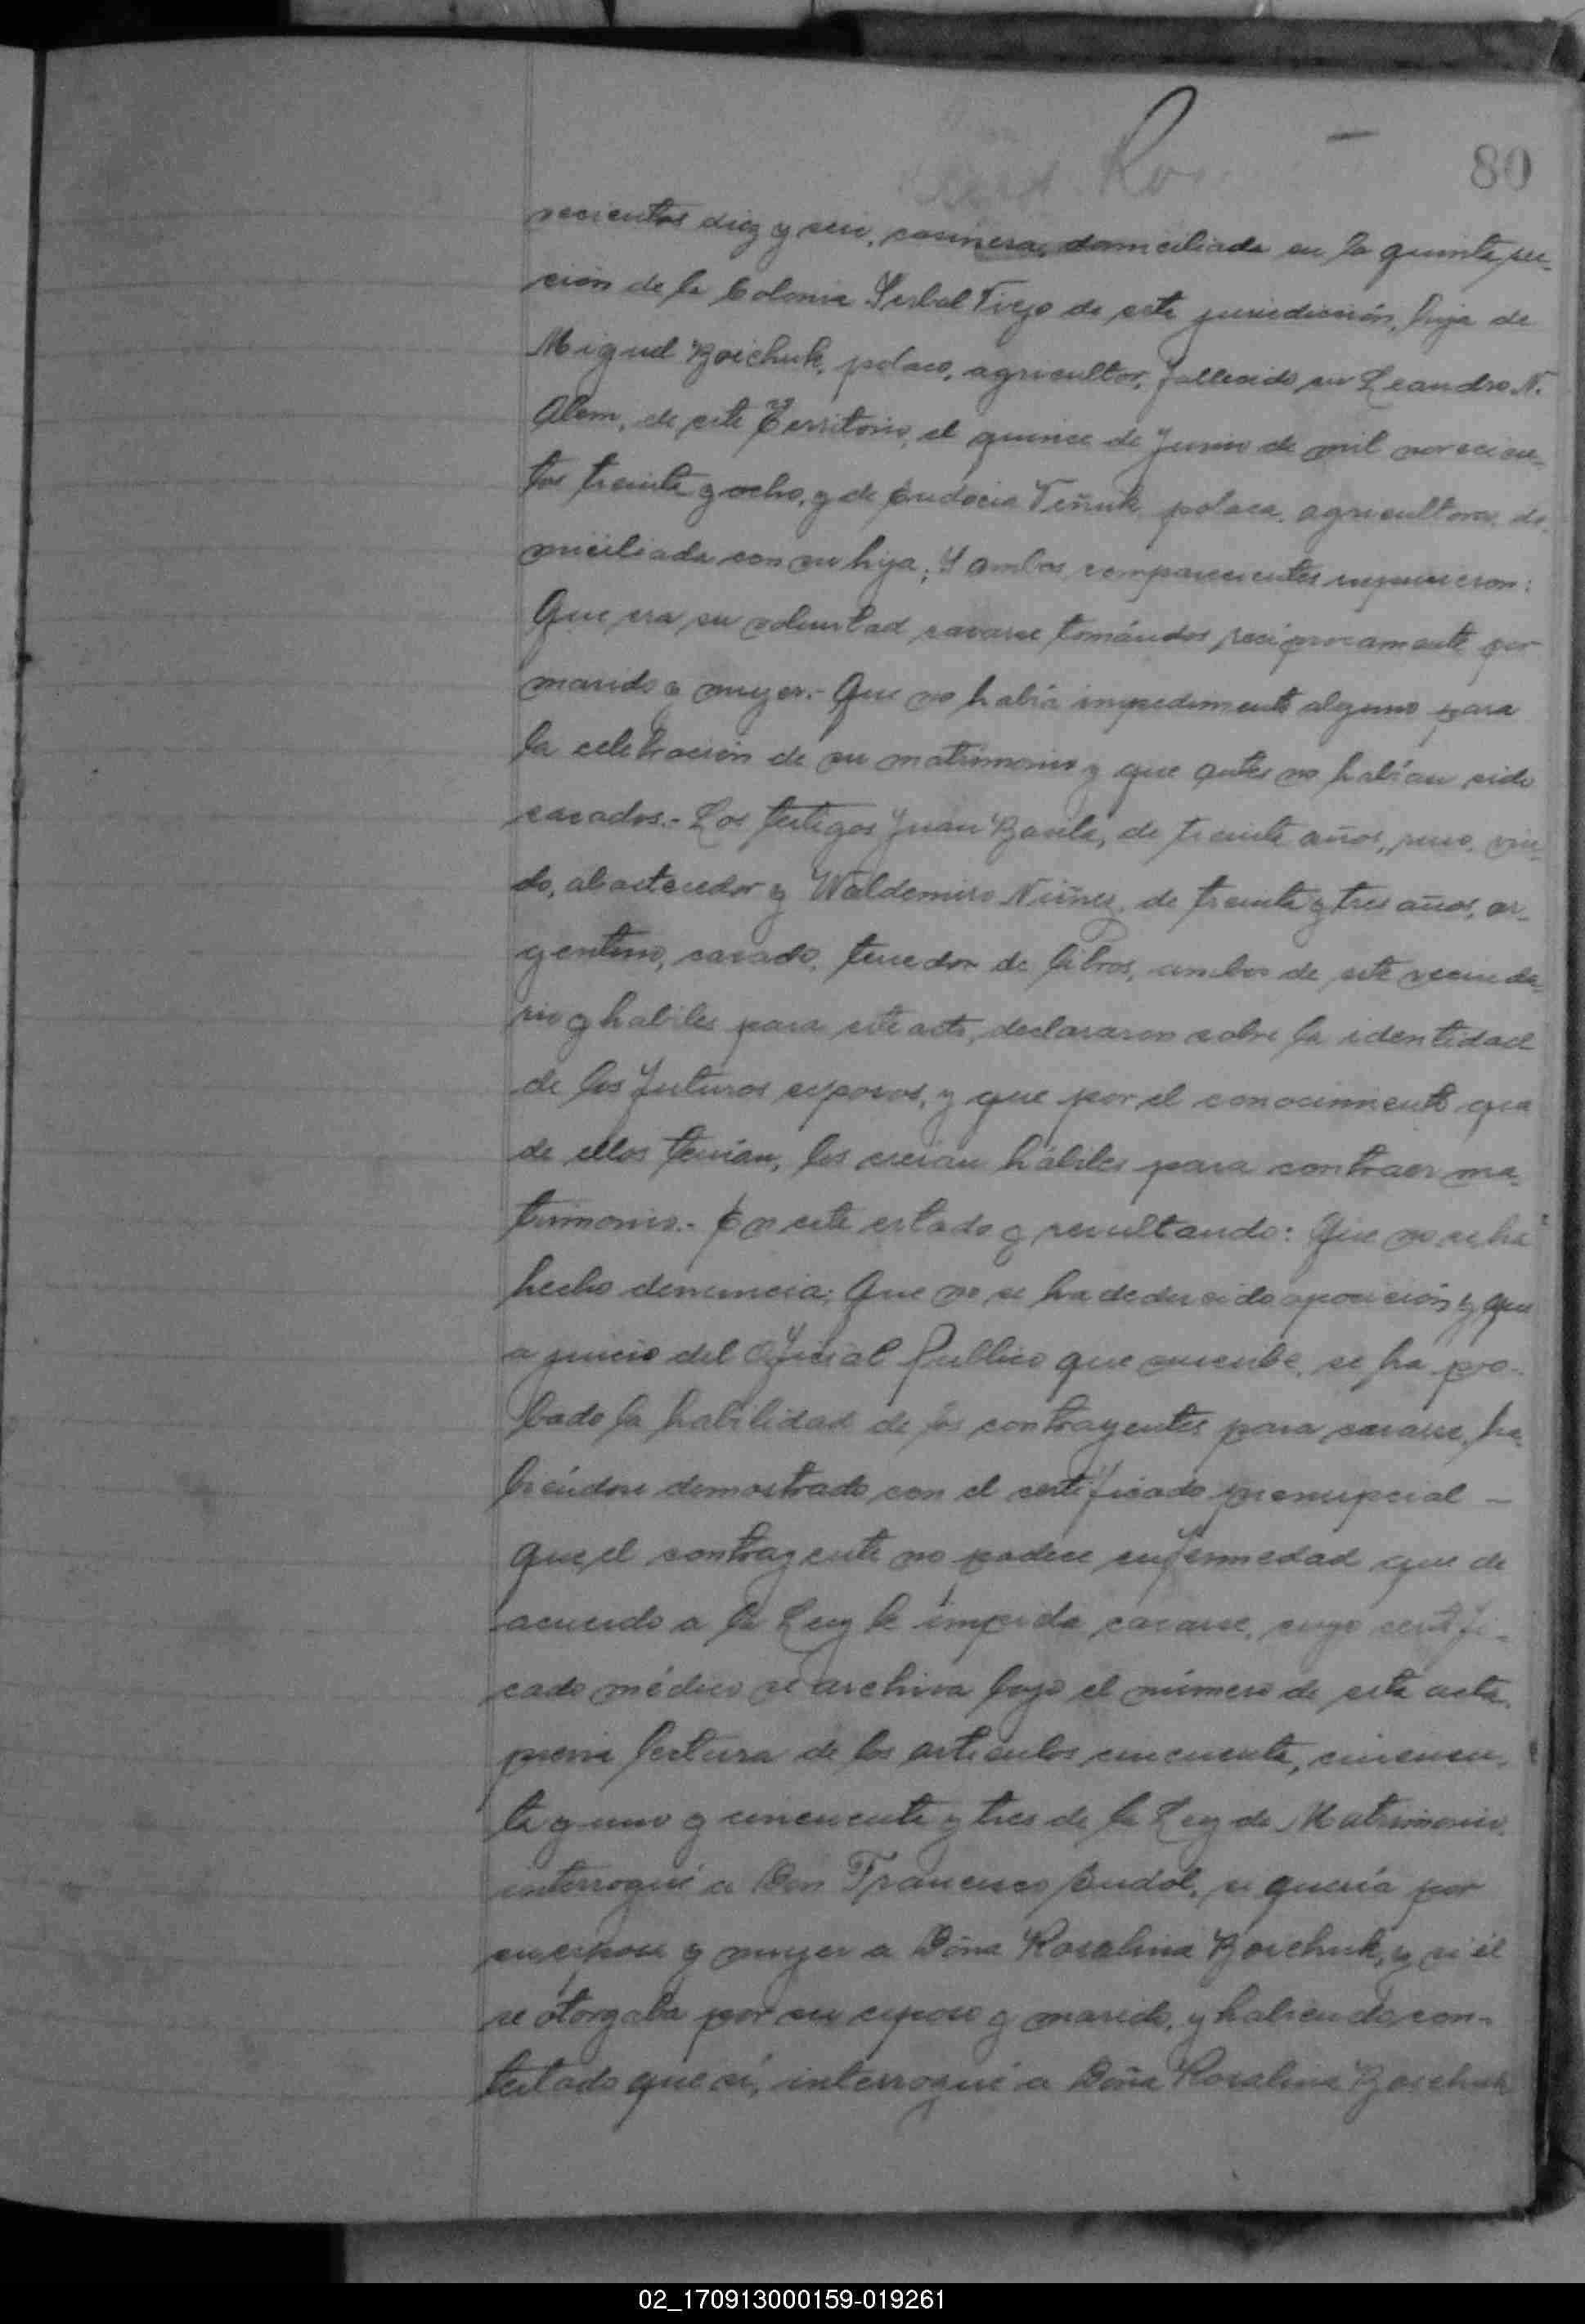 80
vecientos diez y seis, cosinera, domiciliada en la quinta sec-
ción de la Colonia Yerbal Viejo de esta jurisdicción, hija de
Miguel Boichuk, polaco, agricultor, fallecido en Leandro N.
Alem, de este Territorio, el quince de Junio de mil novecien-
tos treinta y ocho, y de Eudocia Teñuk, polaca, agricultora, do-
miciliada con su hija; Y ambos comparecientes expusieron:
Que era su voluntad casarse tomándos recíprocamente por
marido y mujer.- Que no había impedimento alguno para
la celebración de su matrimonio y que antes no habían sido
casados.- Los testigos Juan Bavila, de treinta años, ruso, viu-
do, abastecedor y Waldemiro Núñez, de treinta y tres años, ar-
gentino, casado, tenedor de libros, ambos de este vecinda-
rio y habiles para este acto, declararon sobre la identidad
de los futuros esposos, y que por el conocimiento que
de ellos tenían, los creían hábiles para contraer ma-
trimonio.- En este estado y resultando: Que no se ha
hecho denuncia; Que no se ha deducido oposición y que
a juicio del Oficial Publico que suscribe, se ha pro-
bado la habilidad de los contrayentes para casarse, ha-
biéndose demostrado con el certificado prenupcial -
que el contrayente no padece enfermedad que de
acuerdo a la Ley le impida casarse, cuyo certifi-
cado médico se archiva bajo el número de esta acta,
previa lectura de los artículos cincuenta, cincuen-
ta y uno y cincuenta y tres de la Ley de Matrimonio,
interrogué a Don Francisco Budol, si quería por
su esposa y mujer a Doña Rosalina Boichuk, y si él
se otorgaba por su esposo y marido, y habiendo con-
testado que sí, interrogué a Doña Rosalina Boichuk
02_170913000159-019261